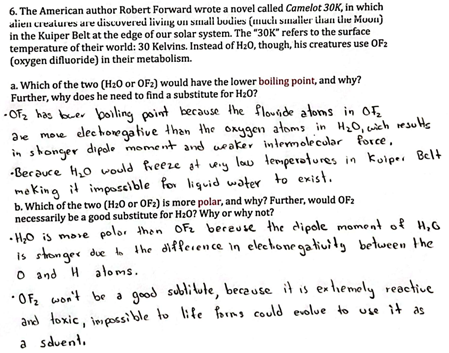 6. The American author Robert Forward wrote a novel called Camelot 30K, in which
alien creatures are discovered living on small bodies (much smaller than the Moon)
in the Kuiper Belt at the edge of our solar system. The "30K" refers to the surface
temperature of their world: 30 Kelvins. Instead of H2O, though, his creatures use OF2
(oxygen difluoride) in their metabolism.
a. Which of the two (H2O or OF2) would have the lower boiling point, and why?
Further, why does he need to find a substitute for H2O?
• OF2 has lower boiling point because the flouride atoms in OF2
are more electronegative than the oxygen atoms in H2O, wich results
in stronger dipole moment and weaker intermolecular force.
• Because H2O would freeze at very low temperatures in Kuiper Belt
making it impossible for liquid water to exist.
b. Which of the two (H2O or OF2) is more polar, and why? Further, would OF2
necessarily be a good substitute for H2O? Why or why not?
• H2O is more polar than OF2 because the dipole moment of H2O
is stronger due to the difference in electronegativity between the
O and H atoms.
• OF2 won't be a good sublitute, because it is extremely reactive
and toxic, impossible to life forms could evolve to use it as
a solvent.